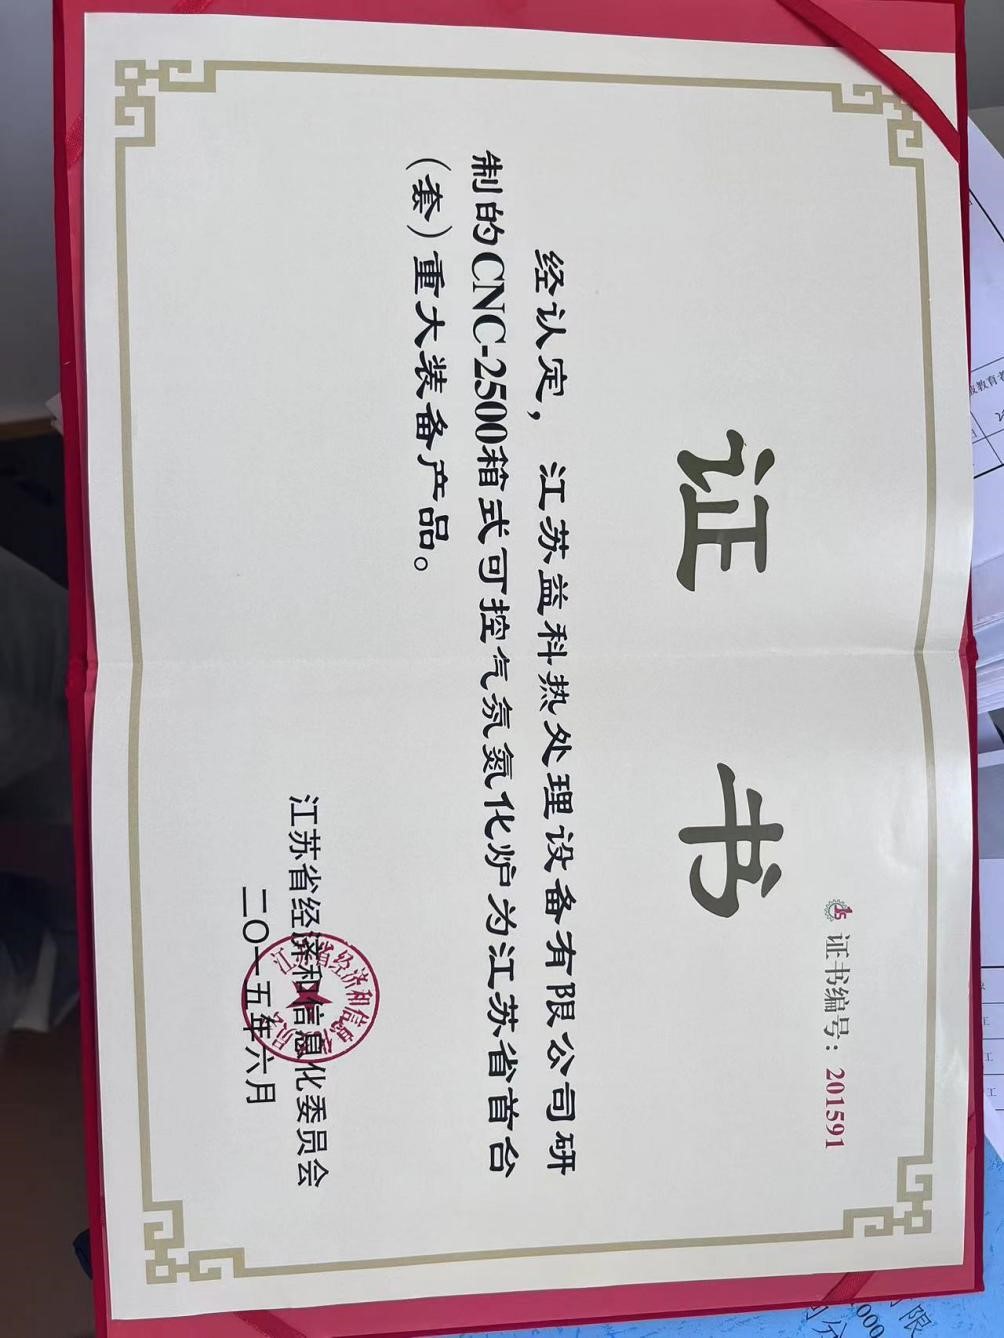 证书编号：201591
证 书
经认定，江苏益科热处理设备有限公司研
制的CNC-2500箱式可控气氛氮化炉为江苏省首台
（套）重大装备产品。
江苏省经济和信息化委员会
二〇一五年六月